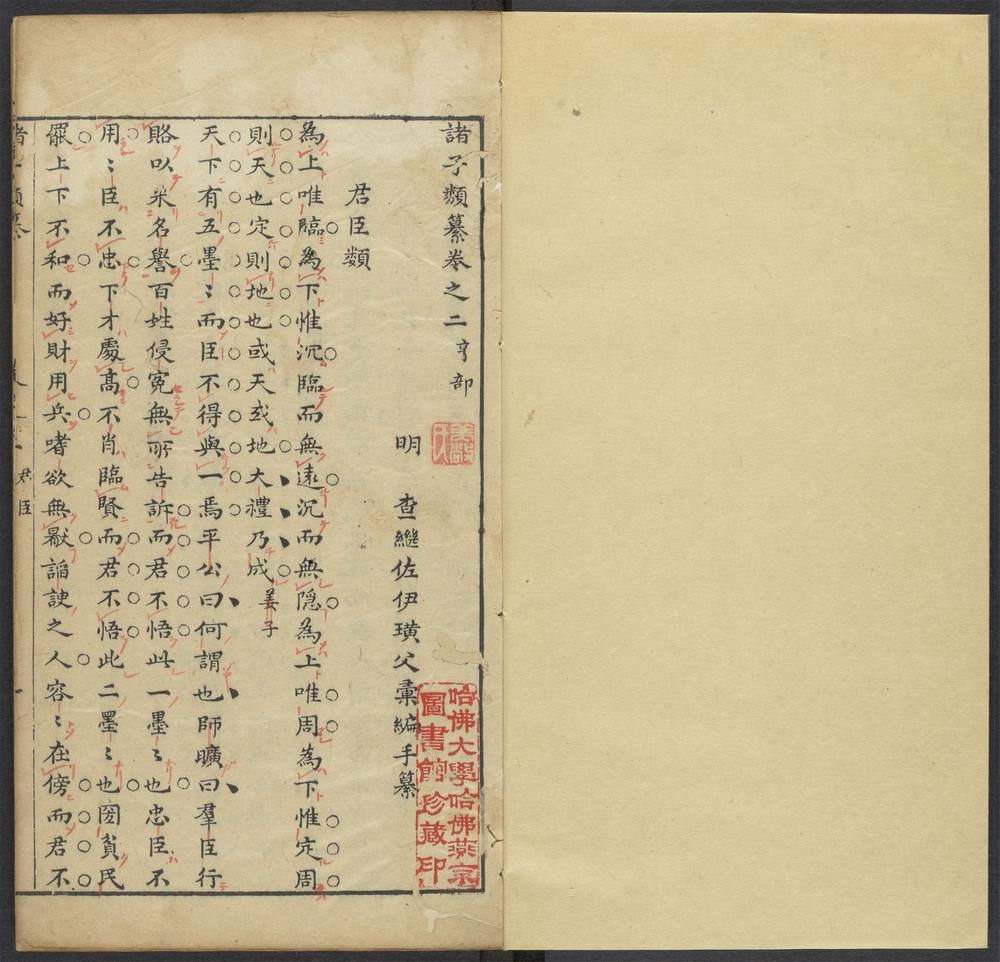 諸子類纂卷之二亨部
明　查繼佐伊璜父彙編手纂
君臣類
為上唯臨為下惟沉臨而無遠沉而無隱為上唯周為下惟定周
則天也定則地也或天或地大禮乃成 姜子
天下有五墨〻而臣不得與一焉平公曰何謂也師曠曰羣臣行
賂以采名譽百姓侵冤無所告訴而君不悟此一墨〻也忠臣不
用〻臣不忠下才處高不肖臨賢而君不悟此二墨〻也
貧民
罷上下不和而好財用兵嗜欲無厭諂諛之人容〻在傍而君不
君臣
一
哈佛大學哈佛燕京
圖書館珍藏印